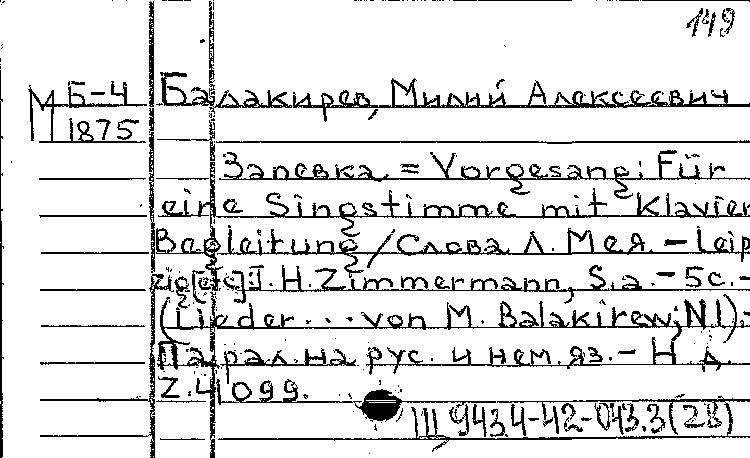 149
М Б-4 Балакирев, Милий Алексеевич
1875
Запевка = Vorgesang: Für
eine Singstimme mit Klavier
Begleitung / Слова Л. Мея. - Leip
zig [etc] I. H. Zimmermann, S. a. - 5c. -
(Lieder ... von M. Balakirew; N1). -
Парал. на рус. и нем. яз. - Н д.
Z. 4099.
III 943.4-42-043.3(28)